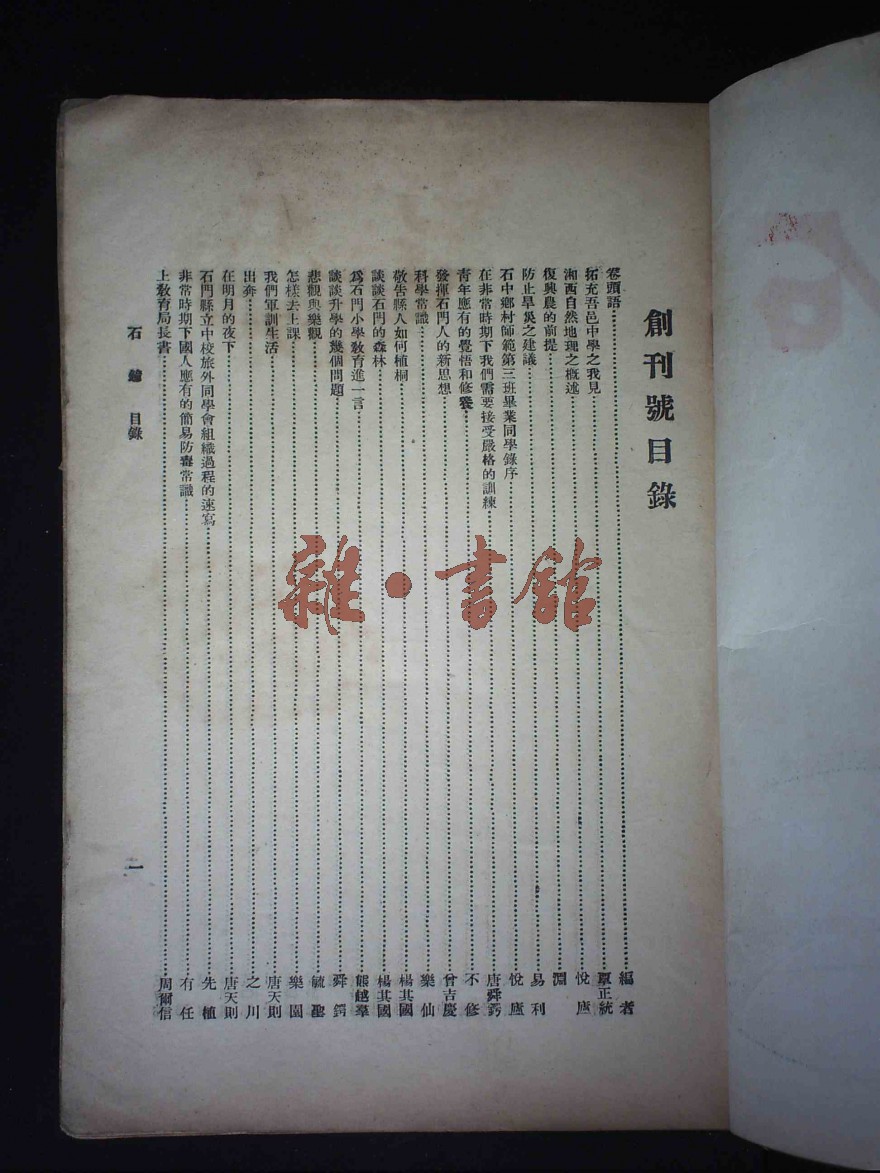 創刊號目錄
卷頭語 編者
拓充吾邑中學之我見 覃正統
湘西自然地理之概述 悅廬
復興農的前提 淵
防止旱災之建議 易利
石中鄉村師範第三班畢業同學錄序 悅廬
在非常時期下我們需要接受嚴格的訓練 唐舜鍔
青年應有的覺悟和修養 不修
發揮石門人的新思想 曾吉慶
科學常識 樂仙
敬告縣人如何植桐 楊其國
談談石門的森林 楊其國
爲石門小學敎育進一言 熊越羣
談談升學的幾個問題 舜鍔
悲觀與樂觀 毓聖
怎樣去上課 樂園
我們軍訓生活 唐天則
出奔 之川
在明月的夜下 唐天則
石門縣立中校旅外同學會組織過程的速寫 先植
非常時期下國人應有的簡易防毒常識 有任
上敎育局長書 周爾信
石 目錄
一
雜·書館